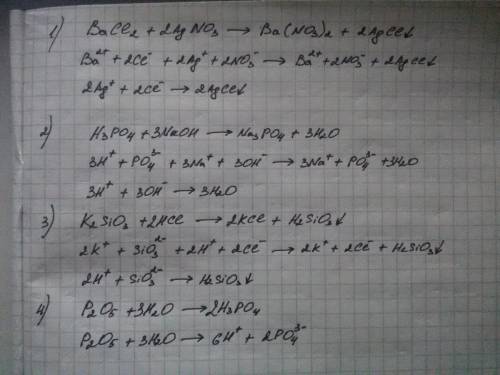 1) BaCl₂ + 2AgNO₃ → Ba(NO₃)₂ + 2AgCl↓
Ba²⁺ + 2Cl⁻ + 2Ag⁺ + 2NO₃⁻ → Ba²⁺ + 2NO₃⁻ + 2AgCl↓
2Ag⁺ + 2Cl⁻ → 2AgCl↓
2) H₃PO₄ + 3NaOH → Na₃PO₄ + 3H₂O
3H⁺ + PO₄³⁻ + 3Na⁺ + 3OH⁻ → 3Na⁺ + PO₄³⁻ + 3H₂O
3H⁺ + 3OH⁻ → 3H₂O
3) K₂SiO₃ + 2HCl → 2KCl + H₂SiO₃↓
2K⁺ + SiO₃²⁻ + 2H⁺ + 2Cl⁻ → 2K⁺ + 2Cl⁻ + H₂SiO₃↓
2H⁺ + SiO₃²⁻ → H₂SiO₃↓
4) P₂O₅ + 3H₂O → 2H₃PO₄
P₂O₅ + 3H₂O → 6H⁺ + 2PO₄³⁻